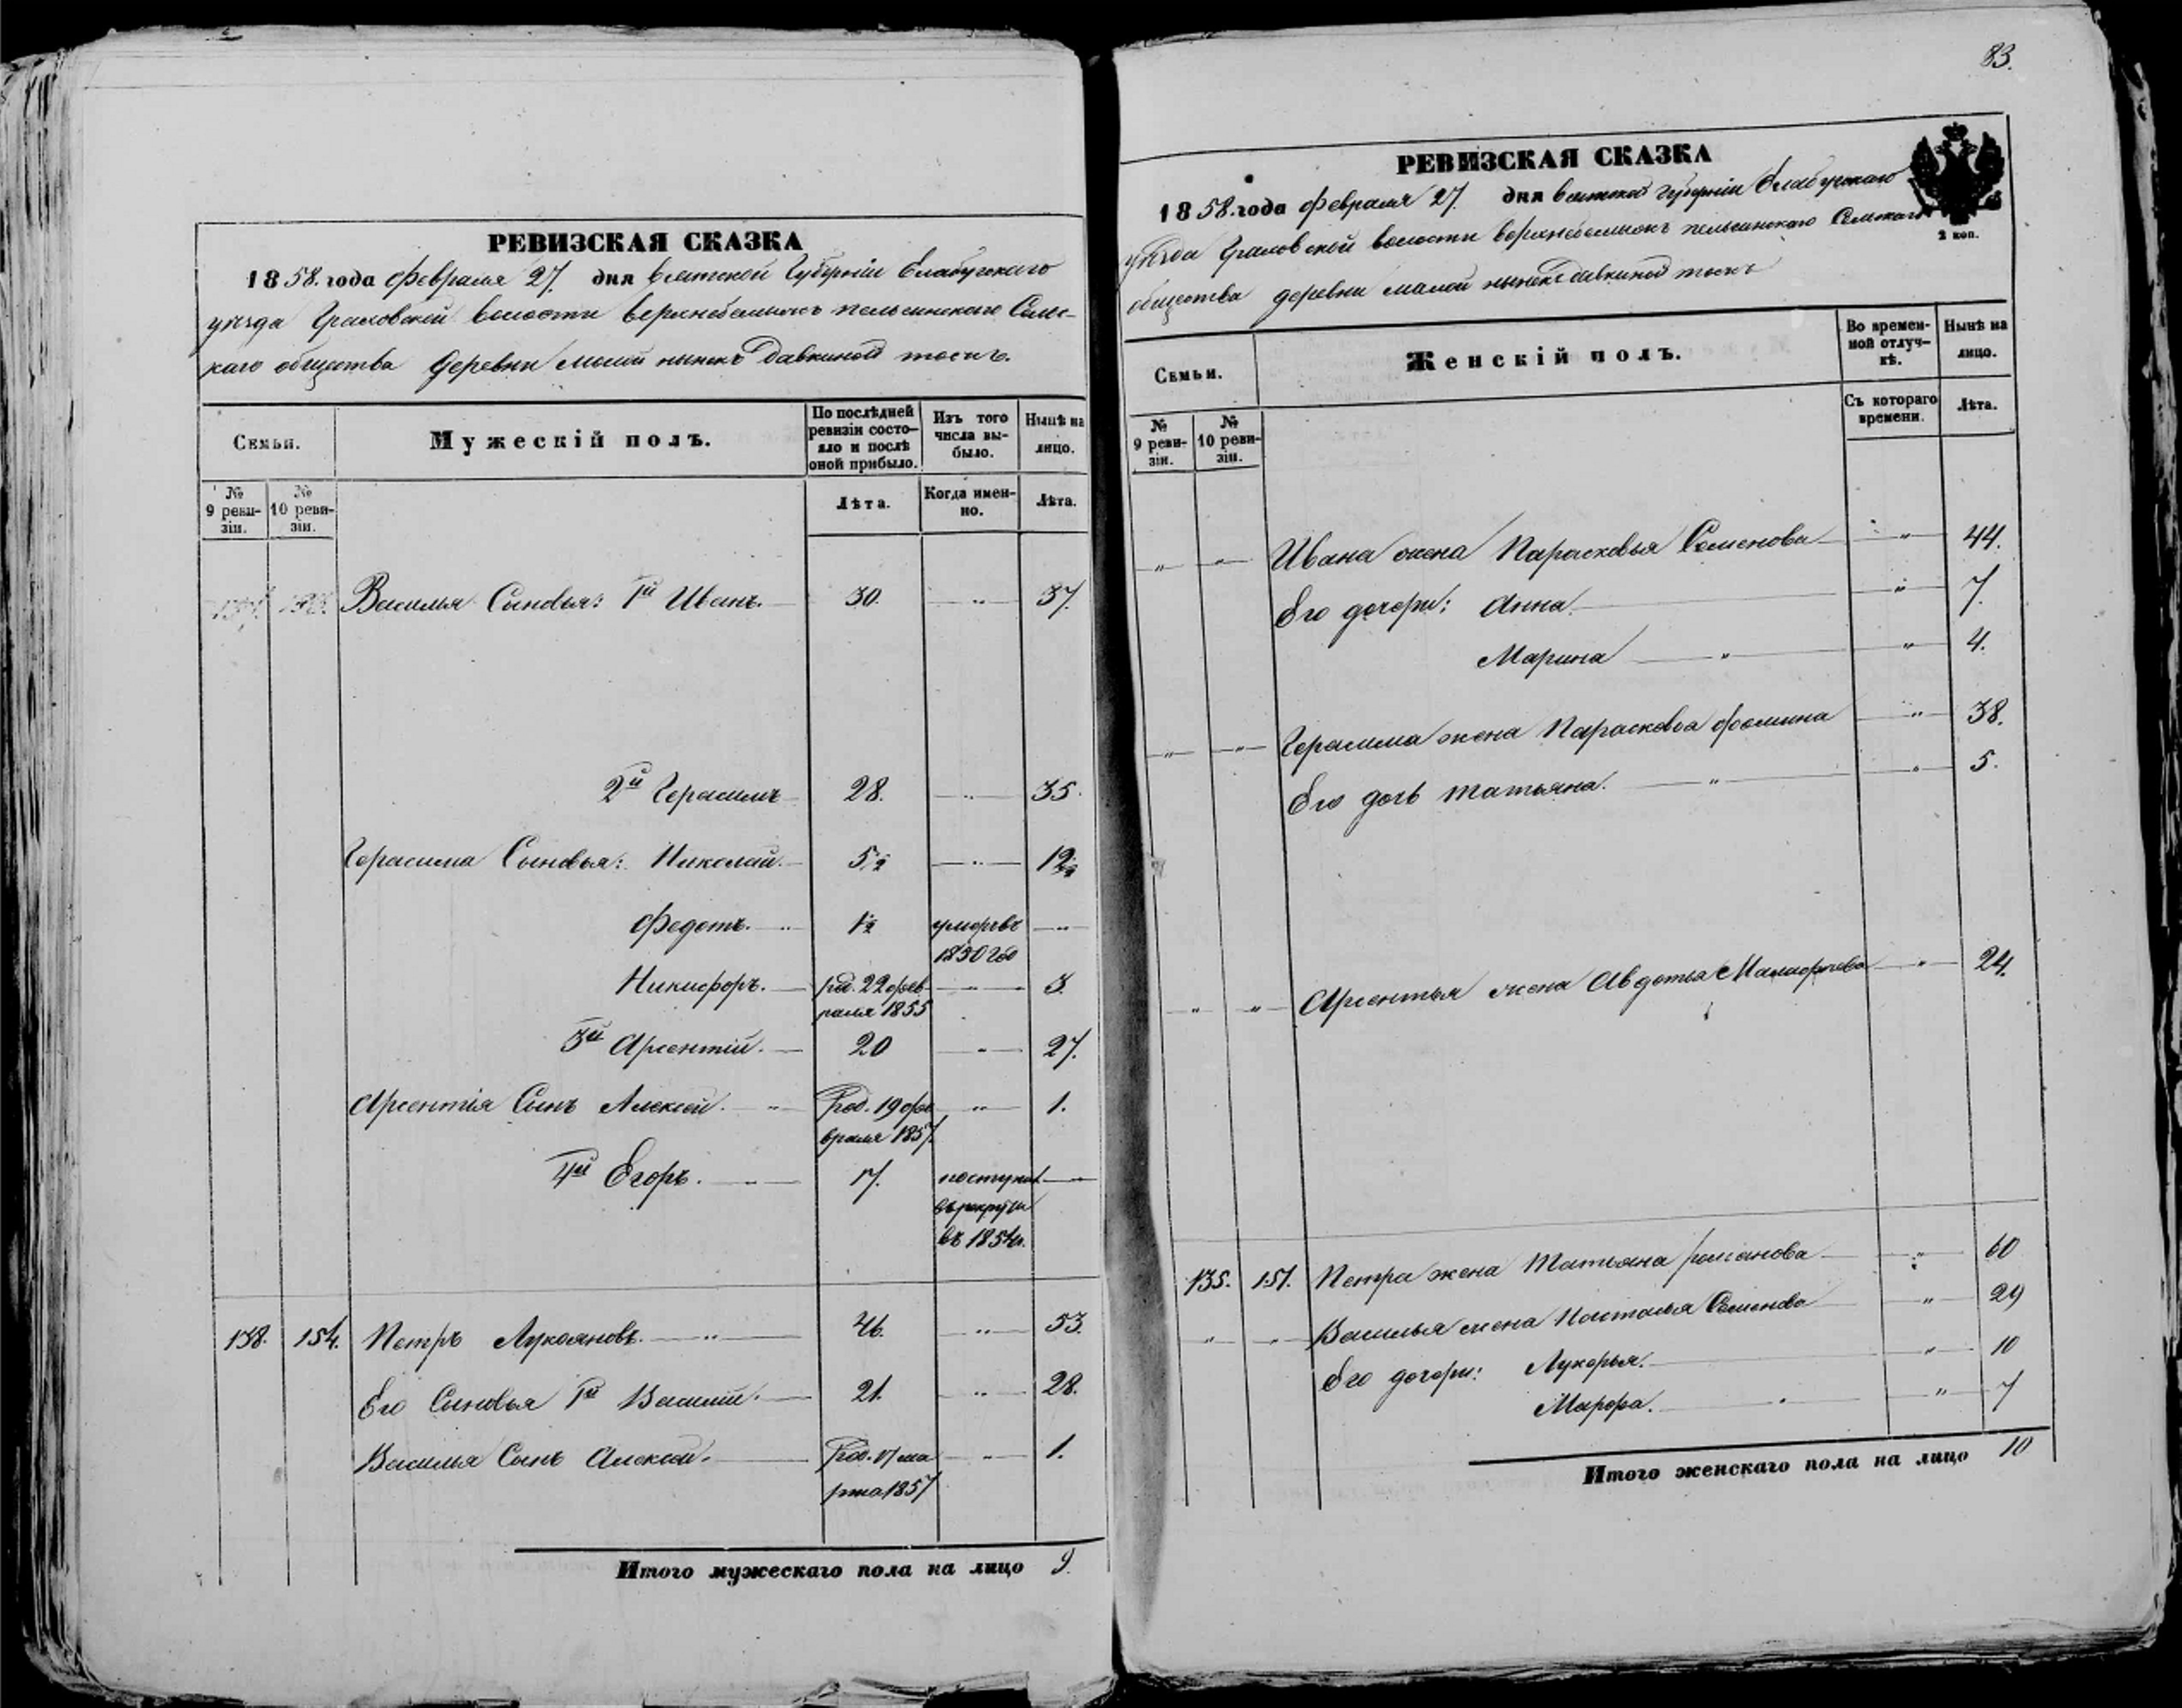 РЕВИЗСКАЯ СКАЗКА
1858. года Февраля 27. дня Вятской Губерніи Елабугскаго
уѣзда Граховской волости Сельс-
каго общества деревни малой
Семьи.
Мужескій полъ.
По послѣдней ревизіи состо-яло и послѣ оной прибыло.
Изъ того числа вы-было.
Нынѣ на лицо.
№ 9 реви-зіи.
№ 10 реви-зіи.
Лѣта.
Когда имен-но.
Лѣта.
Василья Сыновья: 1й Иванъ. 30. „ 37.
2й Герасимъ 28. „ 35.
Герасима Сыновья: Николай. 5½ „ 12½
Федотъ. „ 1½ умеръ въ „
1850 год
Никифоръ. род. 22 фев- „ 3.
раля 1855
3й Арсентій. 20 „ 27.
Арсентія Сынъ Алексей. „ Род. 19 фе „ 1.
враля 1857.
4й Егоръ. „ 17. поступил „
въ рекруты
въ 1854 г.
138. 154. Петръ Лукояновъ. „ 46. „ 53.
Его Сыновья 1й Василій. 21. „ 28.
Василья Сынъ Алексей. Род. 17 ма „ 1.
рта 1857
Итого мужескаго пола на лицо 9.
83.
РЕВИЗСКАЯ СКАЗКА
1858. года Февраля 27. дня Вятской Губерніи Елабугскаго
2 коп.
уѣзда Граховской волости Сельскаго
общества деревни малой
Семьи.
Женскій полъ.
Во времен-ной отлуч-кѣ.
Нынѣ на лицо.
№ 9 реви-зіи.
№ 10 реви-зіи.
Съ котораго времени.
Лѣта.
„ „ Ивана жена Парасковья Семенова „ 44.
Его дочери: Анна. „ 7.
Марина „ „ 4.
„ „ Герасима жена Парасковья Фомина „ 38.
Его дочь Татьяна. „ „ 5.
„ „ Арсентья жена Авдотья „ 24.
135. 151. Петра жена Татьяна Романова „ 60
„ „ Василья жена Наталья Семенова „ 29
Его дочери: Лукерья. „ 10
Марфа. „ „ 7
Итого женскаго пола на лицо 10